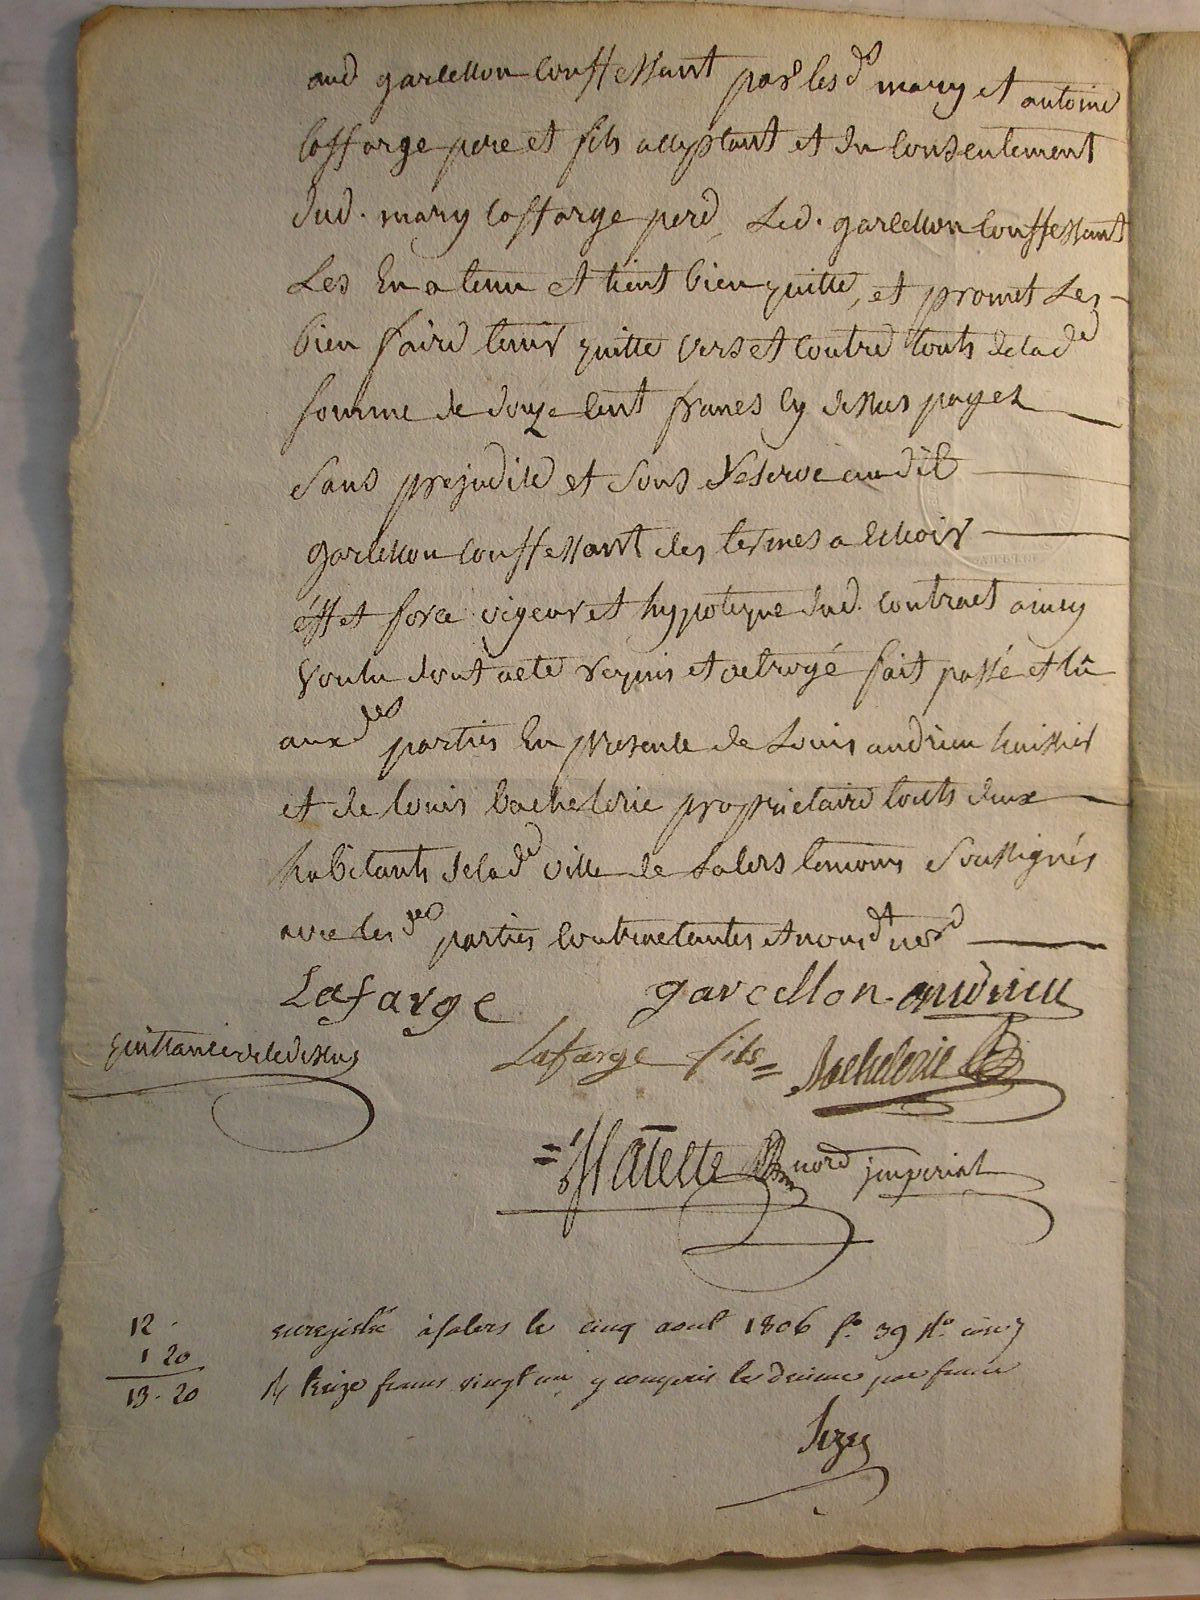 aud garcellon conffessant par lesd mary et antoine
laffarge pere et fils acceptant et du consentement
dud. mary laffarge pere, Led. garcellon conffessant
Les En a tenu et tient bien quitte, et promet Les
bien faire tenir quitte vers et contre touts de lade
somme de douze cent francs cy dessus payez
sans prejudice et sous Reserve audit
garcellon conffessant des termes a Echoir
éffet force vigeur et hypoteque dud. contract ainsy
voulu dont acte Requis et octroyé fait passé et lû
auxdes parties En presence de Louis andrieu huissier
et de louis bachelerie proprietaire touts deux
habitants de lade ville de Salers temoins soussignés
avec lesdes parties contractantes et nousdt nore
Lafarge garcellon. andrieu
quittance de le dessus Lafarge fils Bachelerie
nore jmperial
12
1 20
13. 20
enregistré à salers le cinq aout 1806 fo 39
treize francs vingt y compris le decime par franc